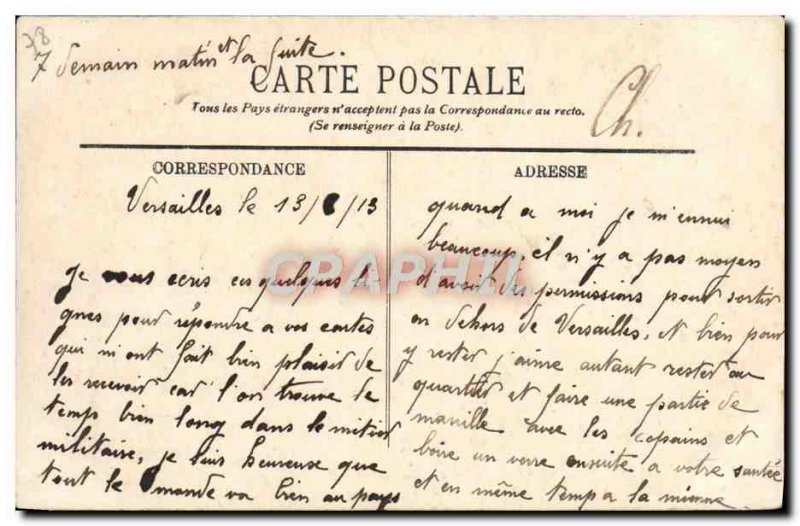 78
7 demain matin et la suite.
CARTE POSTALE
Tous les Pays étrangers n'acceptent pas la Correspondance au recto.
(Se renseigner à la Poste).
Ch.
CORRESPONDANCE
Versailles le 13/8/13
Je vous ecris ces quelques li
gnes pour répondre a vos cartes
qui m'ont fait bien plaisir de
les recevoir car l'on trouve le
temps bien long dans le métier
militaire, je suis heureuse que
tout le monde va bien au pays
ADRESSE
quand a moi je m'ennui
beaucoup, il n'y a pas moyen
d'avoir des permissions pour sortir
en dehors de Versailles, et bien pour
y rester j'aime autant rester au
quartier et faire une partie de
manille avec les copains et
boire un verre ensuite a votre santée
et en même temp a la mienne
CPAPHIL